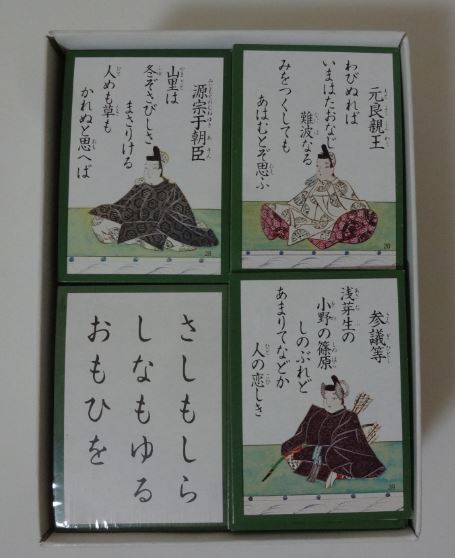 元良親王
わびぬれば
いまはたおなじ
難波なる
みをつくしても
あはむとぞ思ふ
20
源宗于朝臣
山里は
冬ぞさびしさ
まさりける
人めも草も
かれぬと思へば
28
参議等
浅茅生の
小野の篠原
しのぶれど
あまりてなどか
人の恋しき
39
さしもしら
しなもゆる
おもひを